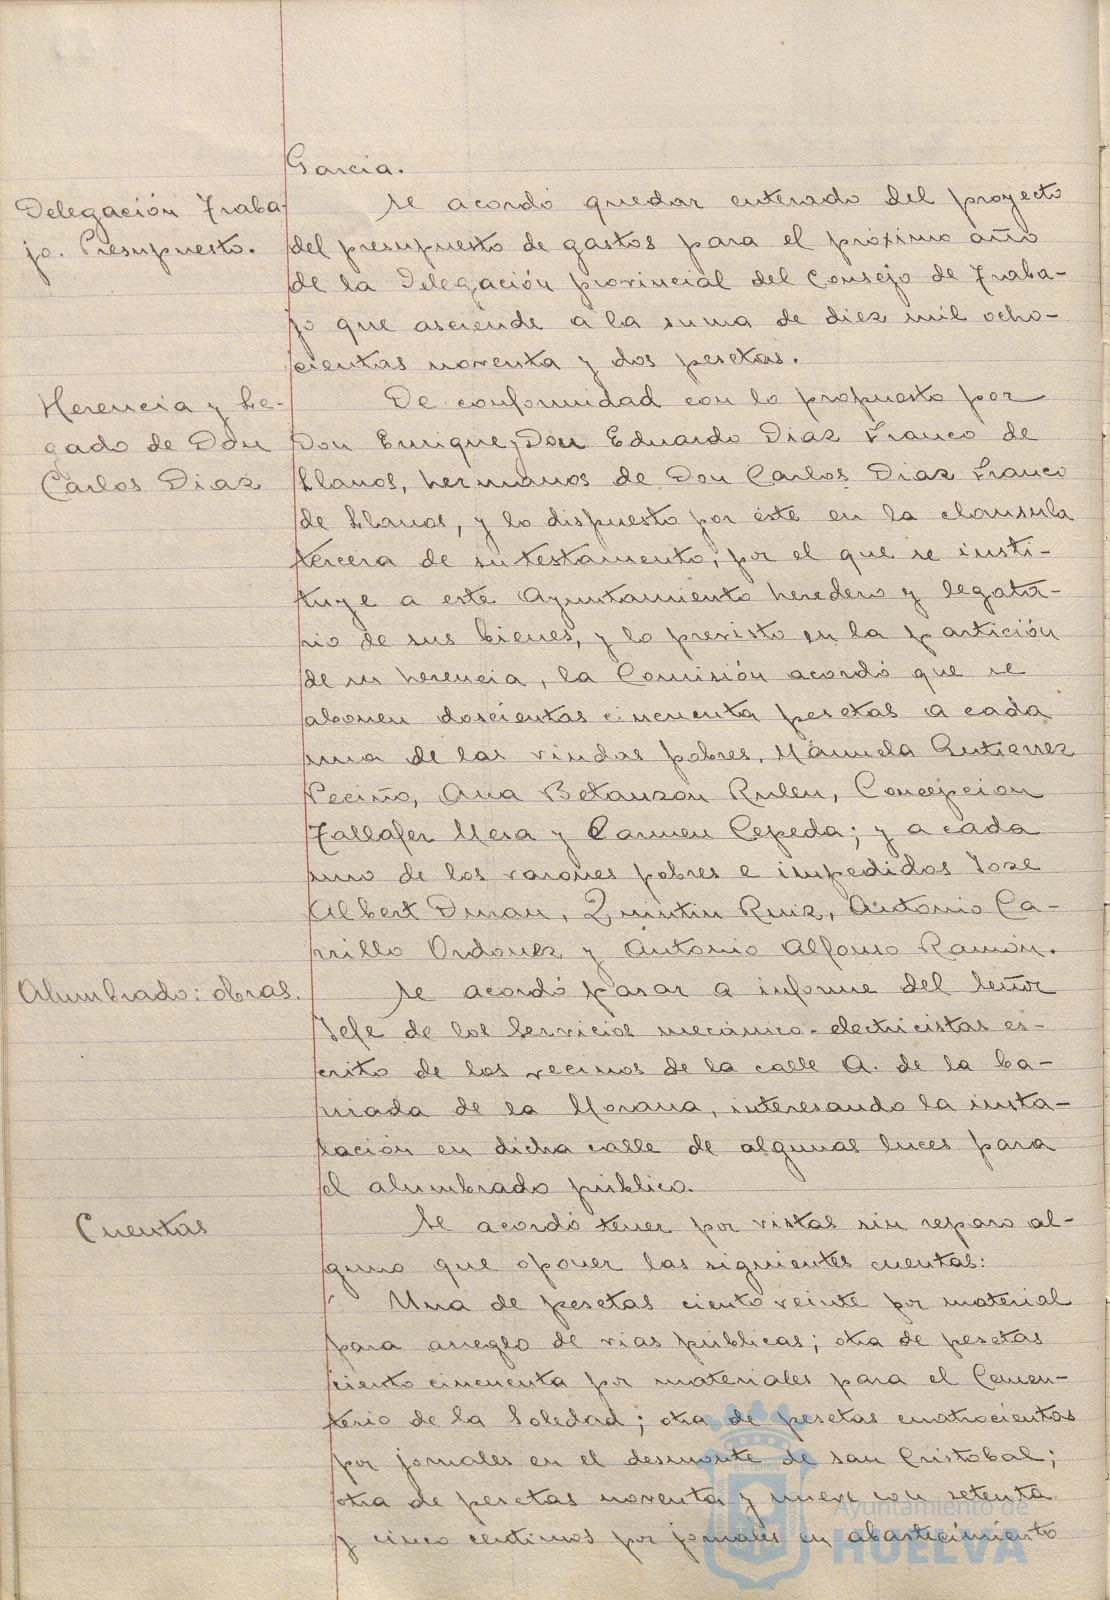 Garcia.
Delegación Traba-
jo. Presupuesto.
Se acordó quedar enterado del proyecto
del presupuesto de gastos para el próximo año
de la Delegación provincial del Consejo de Traba-
jo que asciende a la suma de diez mil ocho-
cientas noventa y dos pesetas.
Herencia y Le-
gado de Don
Carlos Diaz
De conformidad con lo propuesto por
Don Enrique, Don Eduardo Diaz Franco de
Llanos, hermanos de Don Carlos Diaz Franco
de Llanos, y lo dispuesto por éste en la clausula
tercera de su testamento, por el que se insti-
tuye a este Ayuntamiento heredero y legata-
rio de sus bienes, y lo previsto en la partición
de su herencia, la Comisión acordó que se
abonen doscientas cincuenta pesetas a cada
una de las viudas pobres, Manuela Gutierrez
Peciño, Ana Betanzon Rulen, Concepcion
Tallafer Mesa y Carmen Cepeda; y a cada
uno de los varones pobres e impedidos Jose
Albert Duran, Quintin Ruiz, Antonio Ca-
rrillo Ordoñez y Antonio Alfonso Ramón.
Alumbrado: obras.
Se acordó pasar a informe del Señor
Jefe de los Servicios mecánico-electricistas es-
crito de los vecinos de la calle A. de la ba-
rriada de la Morana, interesando la insta-
lación en dicha calle de algunas luces para
el alumbrado público.
Cuentas
Se acordó tener por vistas sin reparo al-
guno que oponer las siguientes cuentas:
Una de pesetas ciento veinte por material
para arreglo de vias públicas; otra de pesetas
ciento cincuenta por materiales para el Cemen-
terio de la Soledad; otra de pesetas cuatrocientas
por jornales en el desmonte de san Cristobal;
otra de pesetas noventa y nueve con setenta
y cinco centimos por jornales en abastecimiento
Ayuntamiento de
HUELVA